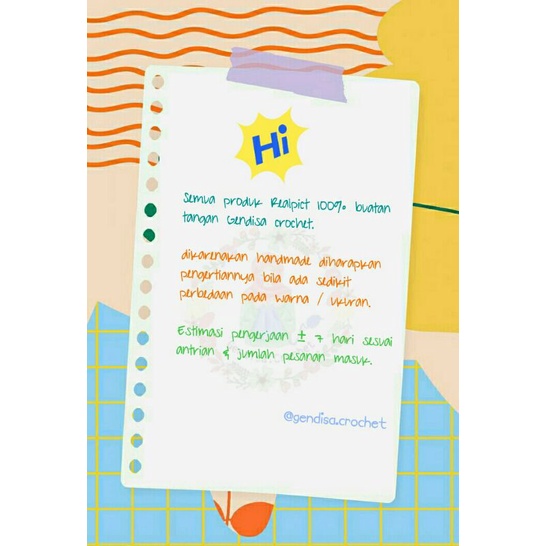 Hi
Semua produk Realpict 100% buatan
tangan Gendisa crochet.
dikarenakan handmade diharapkan
pengertiannya bila ada sedikit
perbedaan pada warna / ukuran.
Estimasi pengerjaan ± 7 hari sesuai
antrian & jumlah pesanan masuk.
@gendisa.crochet